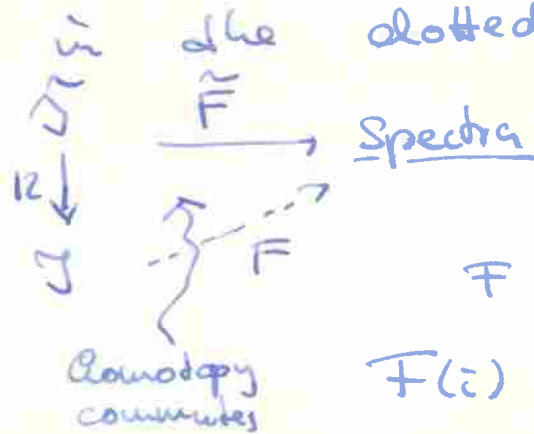 in the dotted
J̃ F̃ Spectra
12
J F F
Homotopy F(i)
commutes